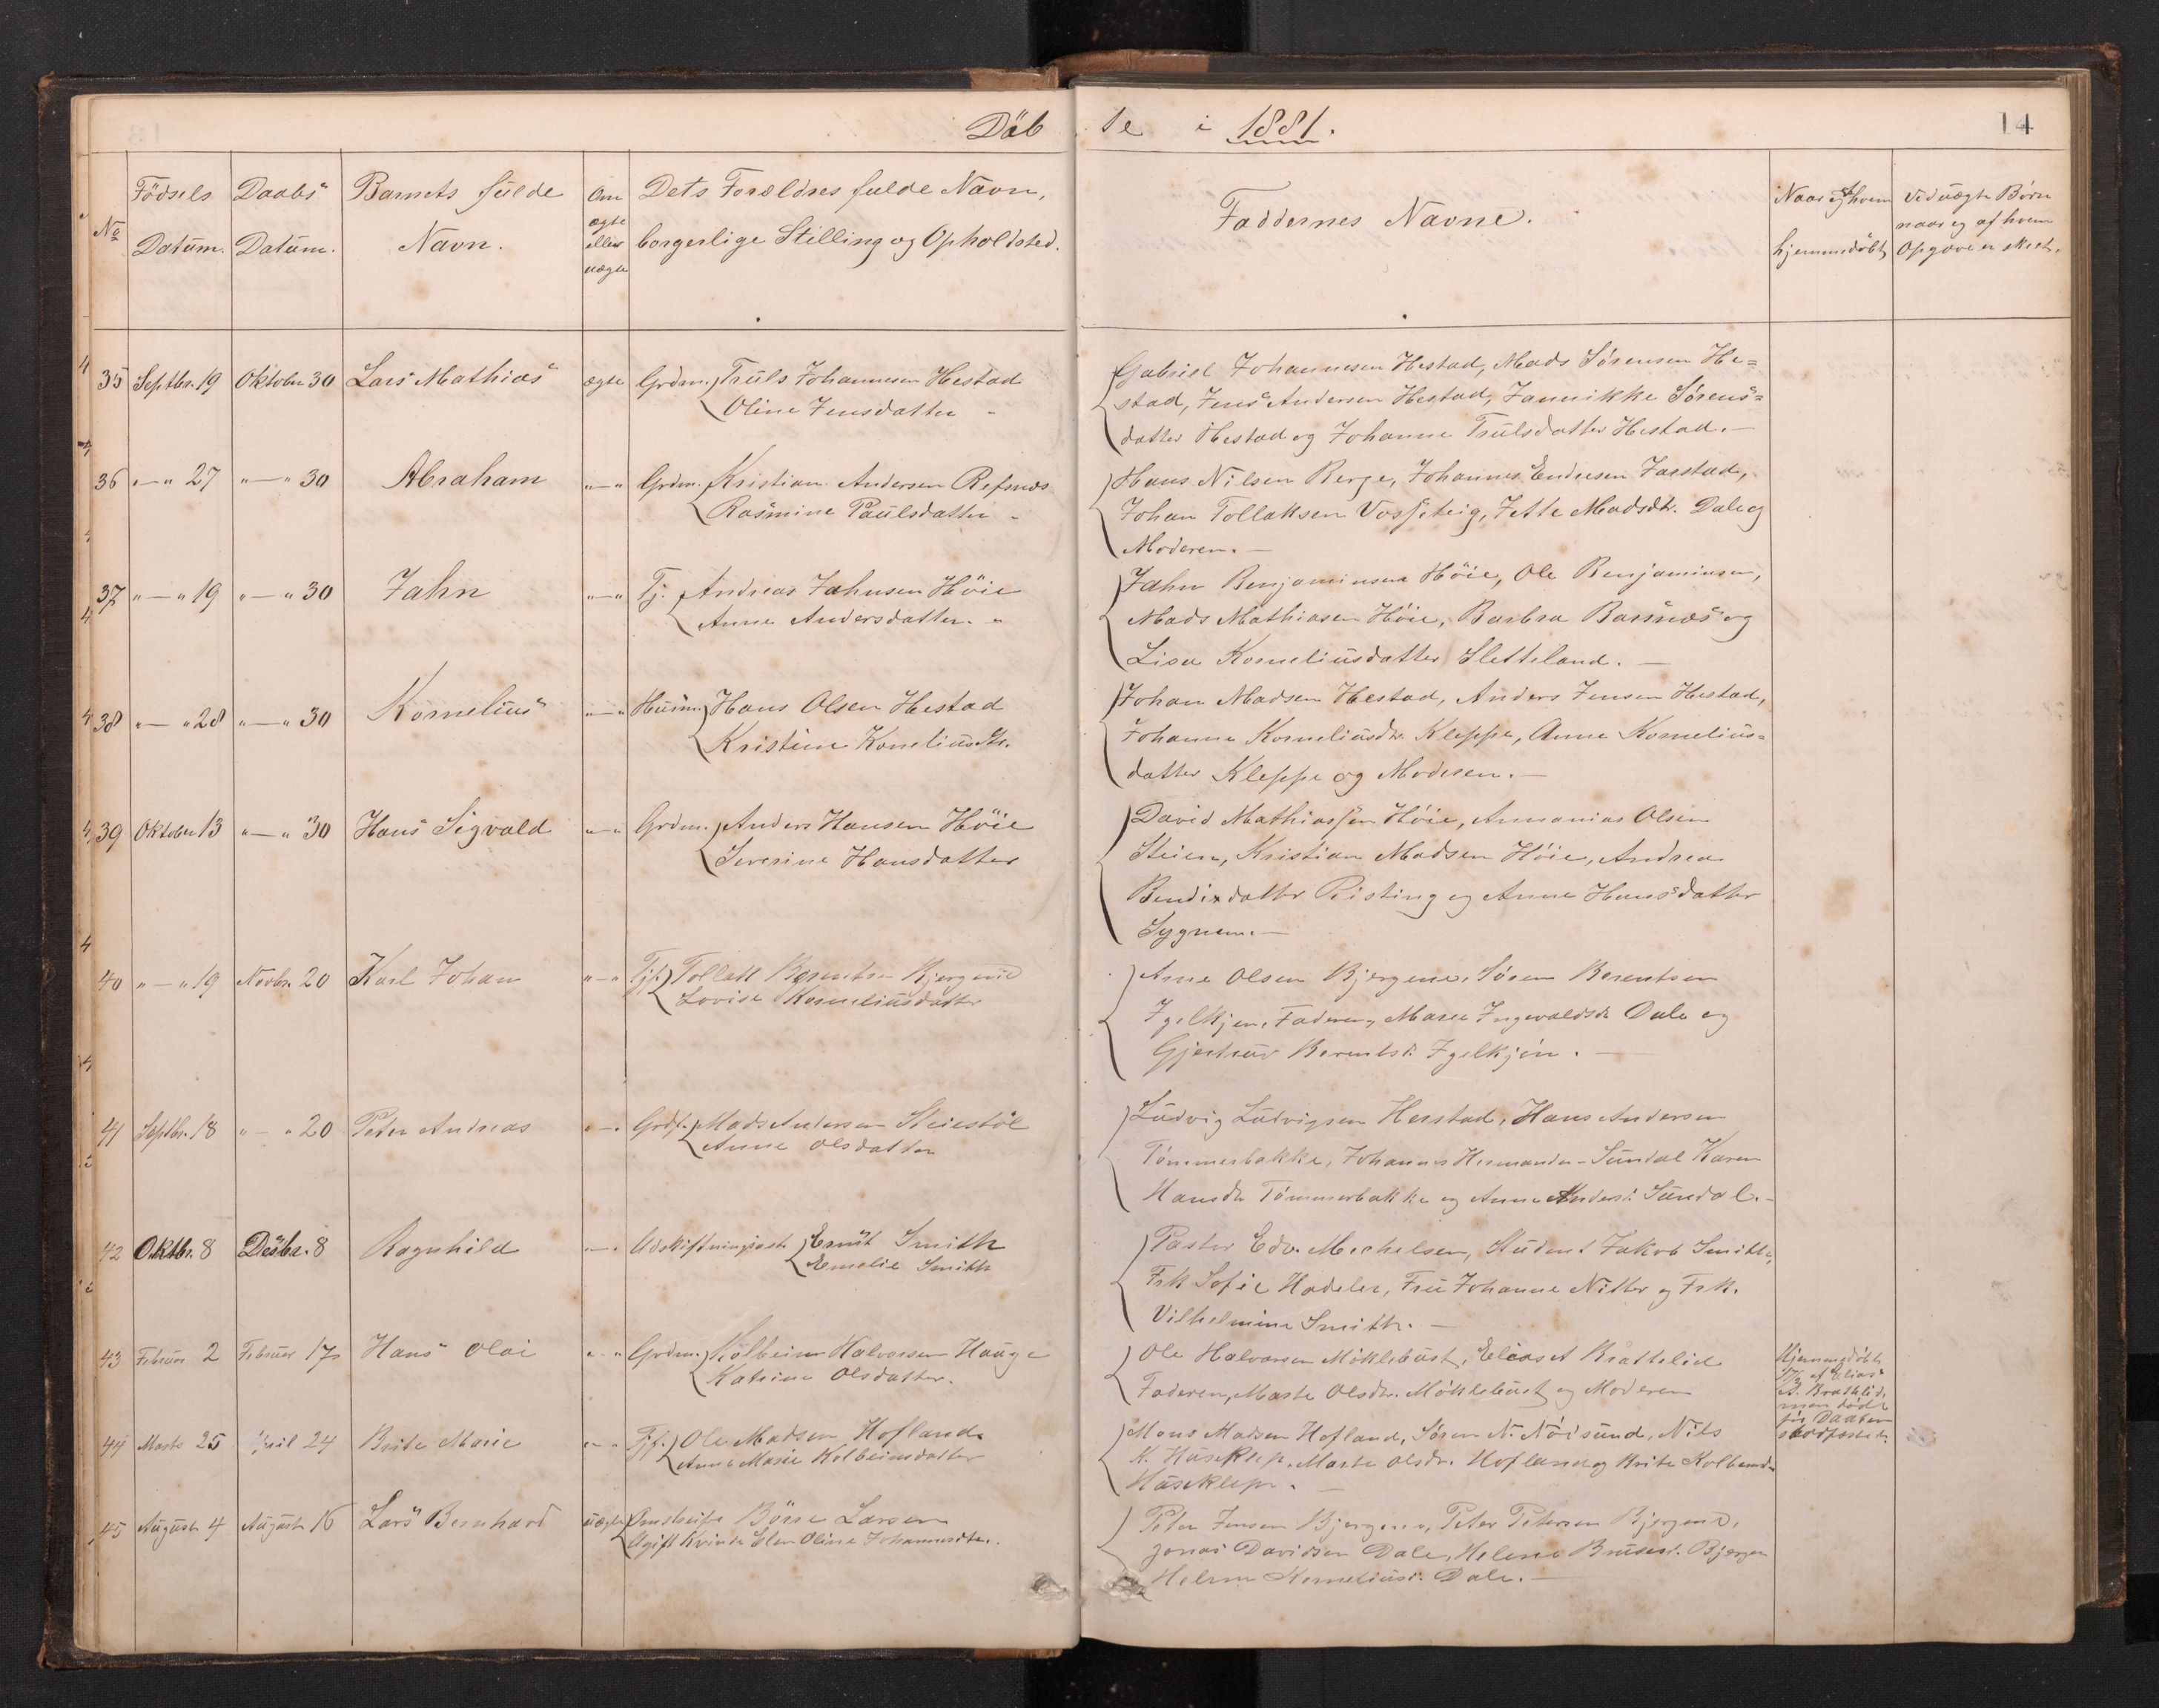 Döbte i 1881.
14
No
Födsels Datum.
Daabs Datum.
Barnets fulde Navn.
Om ægte eller uægte
Dets Forældres fulde Navn, borgerlige Stilling og Opholdsted.
Faddernes Navne.
Naar og af hvem hjemmedöbt
Ved uægte Börn naar og af hvem Opgave er skeet.
35 Septbr. 19 Oktober 30 Lars Mathias ægte Grdm. Truls Johannesen Hestad
Oline Jensdatter "
Gabriel Johannesen Hestad, Mads Sørensen He=
stad, Jens Andersen Hestad, Jannikke Sørens=
datter Hestad og Johanne Trulsdatter Hestad.
36 " — " 27 " — " 30 Abraham " — " Grdm. Kristian Andersen Refsnæs
Rasmine Paulsdatter "
Hans Nilsen Berge, Johannes Endresen Jarstad,
Johan Tollaksen Vossteig, Jette Madsdtr. Dale og
Moderen.
37 " — " 19 " — " 30 Jahn " — " Tj. Andreas Jahnsen Höie
Anne Andersdatter. "
Jahn Benjaminsen Höie, Ole Benjaminsen,
Mads Mathiasen Höie, Barbra Barsnæs og
Lisa Korneliusdatter Sletteland.
38 " — " 28 " — " 30 Kornelius " — " Husm. Hans Olsen Hestad
Kristine Korneliusdtr.
Johan Madsen Hestad, Anders Jensen Hestad,
Johanne Korneliusdtr. Kleppe, Anne Kornelius=
datter Kleppe og Moderen.
39 Oktober 13 " — " 30 Hans Sigvald " — " Grdm. Anders Hansen Höie
Severine Hansdatter
David Mathiassen Höie, Annanias Olsen
Steien, Kristian Madsen Höie, Andrea
Bendixdatter Risting og Anne Hansdatter
Sygnem.
40 " — " 19 Novbr. 20 Karl Johan " — " Tjf. Tollak Berentsen Bjergene
Lovise Korneliusdatter
Arne Olsen Bjergene, Sören Berentsen
Igelkjøn, Faderen, Maria Ingevaldsdr. Dale og
Gjertrud Berentsd. Igelkjön.
41 Septbr. 18 " — " 20 Peter Andreas " — " Grdf. Mads Andersen Steiestöl
Anne Olsdatter
Ludvig Ludvigsen Herstad, Hans Andersen
Tömmerbakke, Johannes Hermansen Sundal Karen
Hansdr. Tömmerbakke og Anne Andersd. Sundal.
42 Oktbr. 8 Desbr. 8 Ragnhild " — " Ernst Smith
Emelie Smith
Pastor Edv. Mechelsen, Student Jakob Smith,
Frk Sofie Hadeler, Fru Johanne Nitter og Frk.
Vilhelmine Smith.
43 Februar 2 Februar 17 Hans Olai " — " Grdm. Kolbein Halvorsen Hauge
Katrine Olsdatter.
Ole Halvorsen Möklebust, Elias A Brattelid
Faderen, Marte Olsdtr. Möklebust og Moderen
Hjemmedöbt
17/2 af Elias
A. Brattelid,
men döde
för Daaben
stadfæstedes.
44 Marts 25 April 24 Brite Marie " — " Tjf. Ole Madsen Hofland
Anne Marie Kolbeinsdatter
Mons Madsen Hofland, Sören N. Nöisund, Nils
K. Huseklep, Marte Olsdr. Hofland og Brite Kolbeinsdr
Huseklepp.
45 August 4 August 16 Lars Bernhard uægte Börre Larsen
Ugift Kvinde Elen Oline Johannesdtr.
Peter Jensen Bjergene, Peter Petersen Bjergene,
Jonas Davidsen Dale, Helene Bjergene
Helene Korneliusd. Dale.